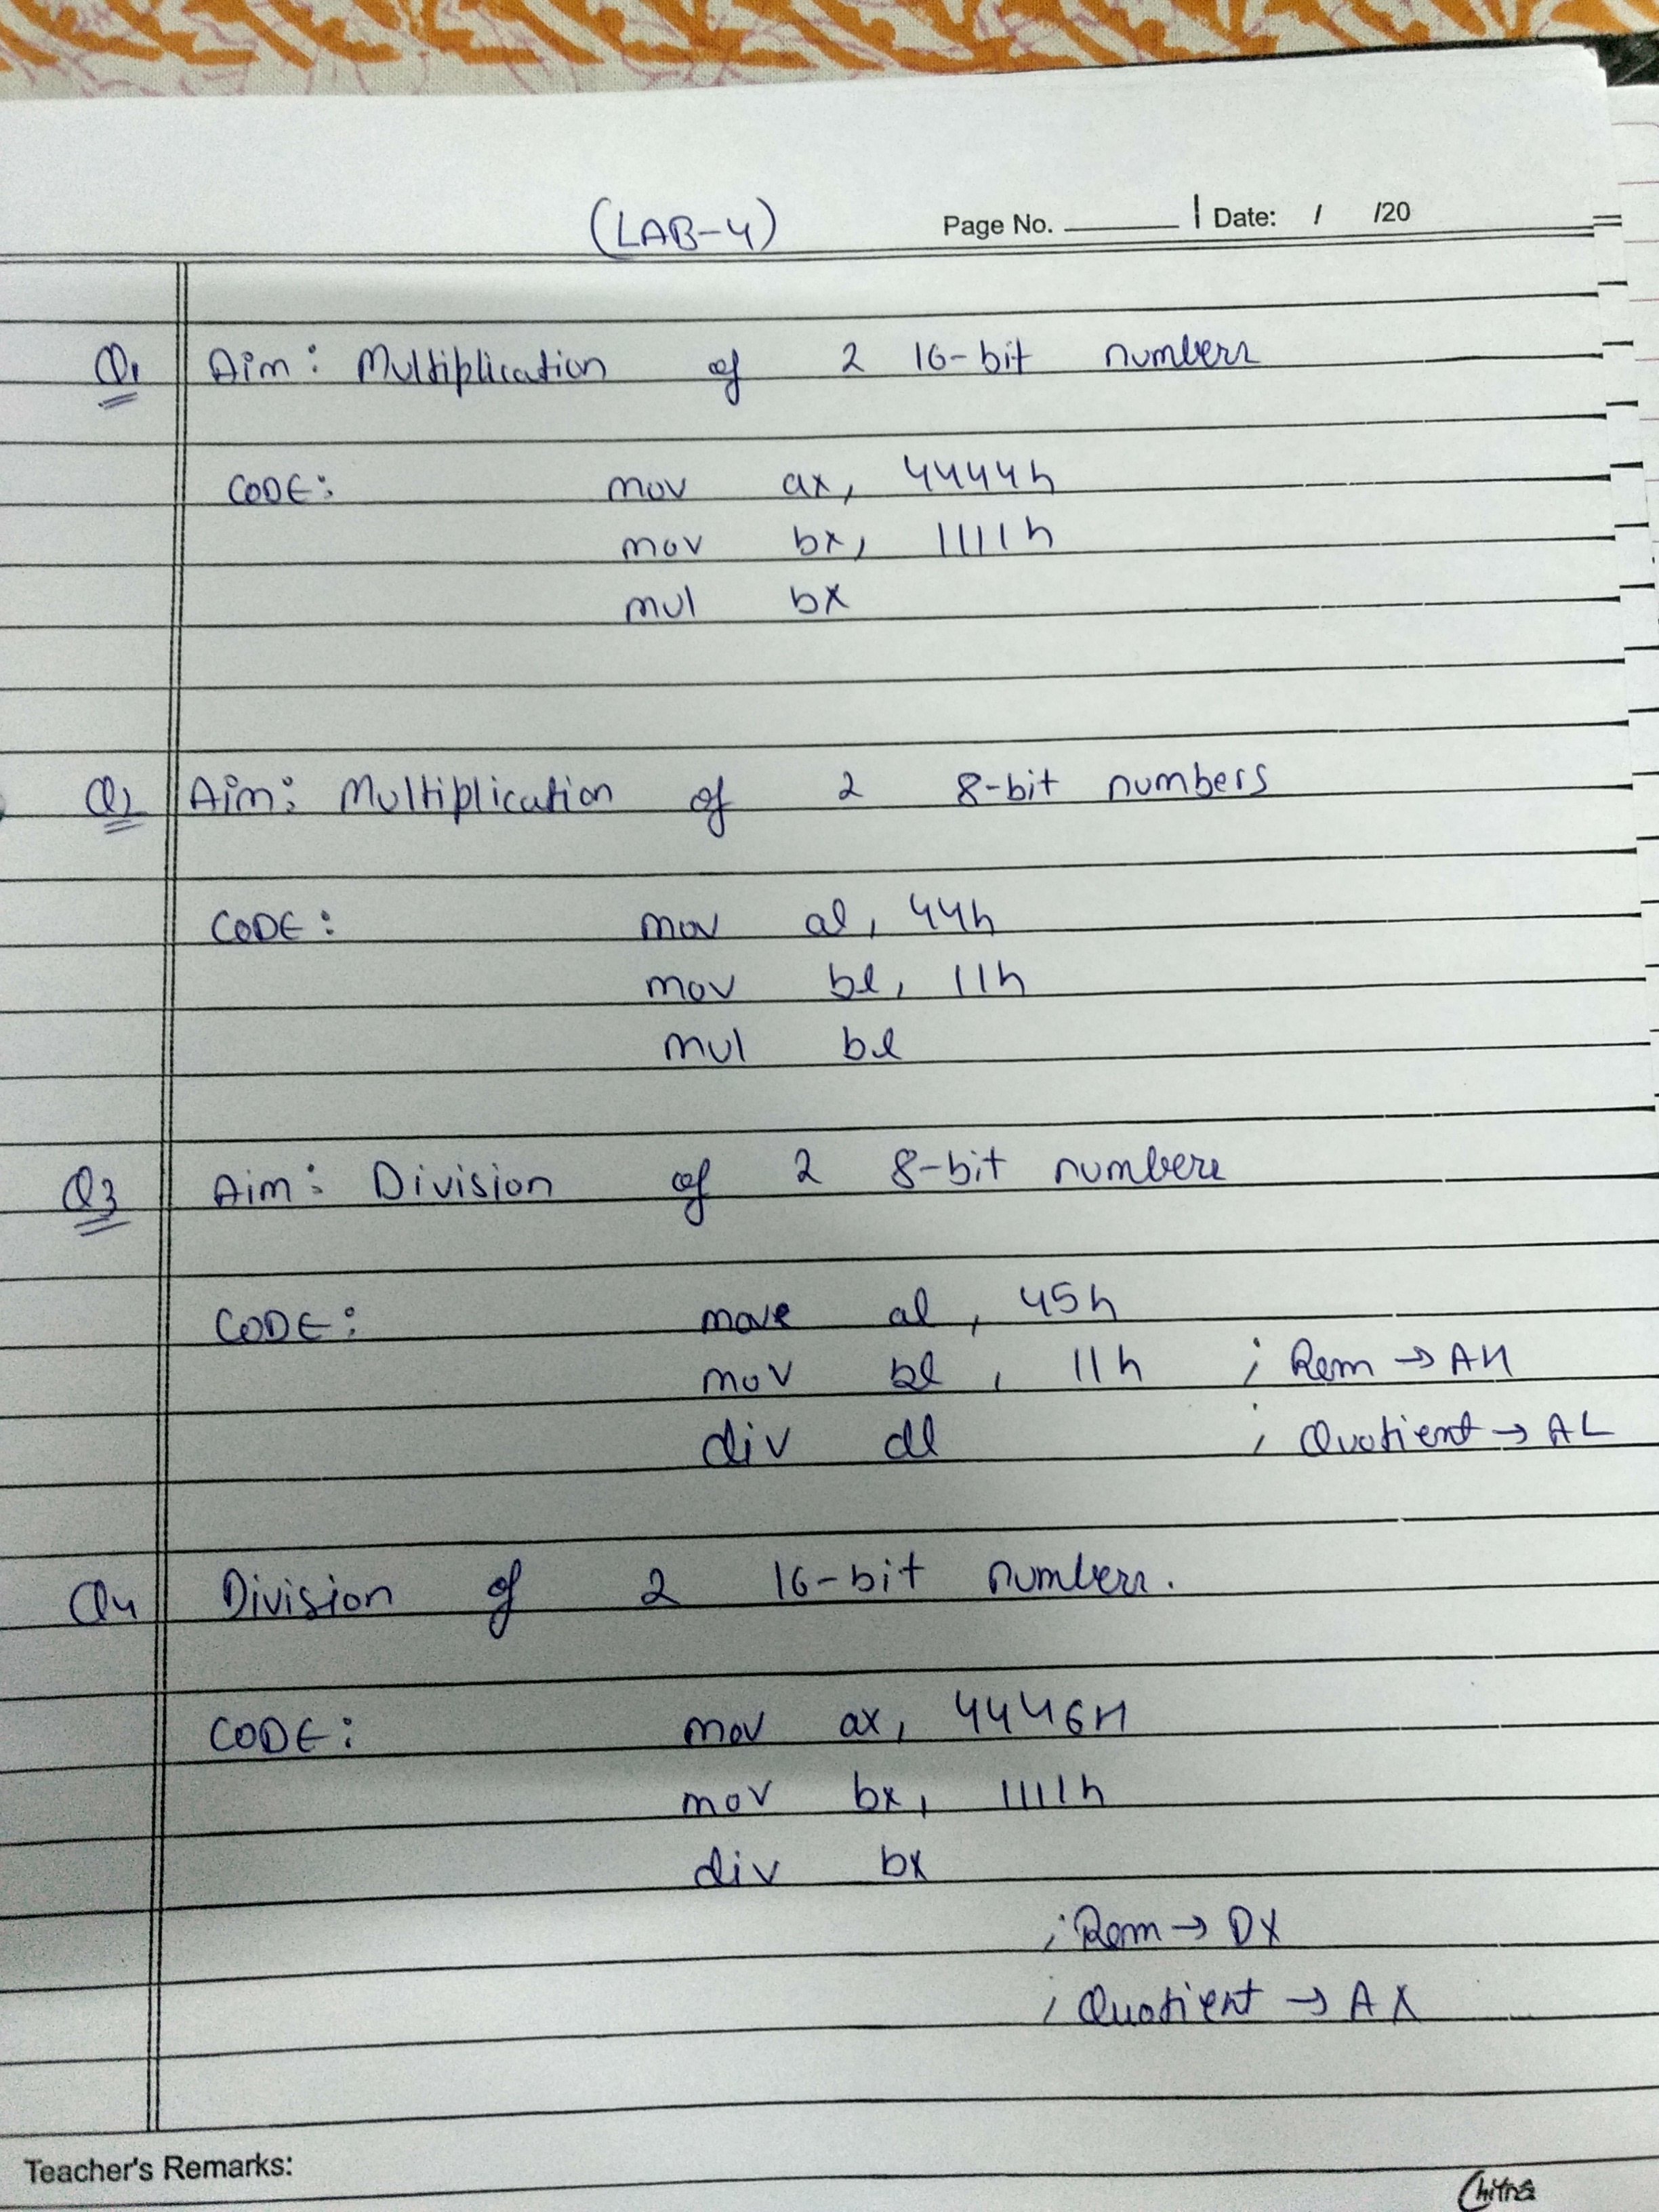 (LAB-4)
Page No. ______ | Date: / /20
Q1 Aim: Multiplication of 2 16-bit numbers
CODE: mov ax, 4444h
mov bx, 1111h
mul bx
Q2 Aim: Multiplication of 2 8-bit numbers
CODE: mov al, 44h
mov bl, 11h
mul bl
Q3 Aim: Division of 2 8-bit numbers
CODE: move al, 45h
mov bl, 11h ; Rem → AH
div dl ; Quotient → AL
Q4 Division of 2 16-bit numbers.
CODE: mov ax, 4446H
mov bx, 1111h
div bx
; Rem → DX
; Quotient → AX
Teacher's Remarks:
Chitra